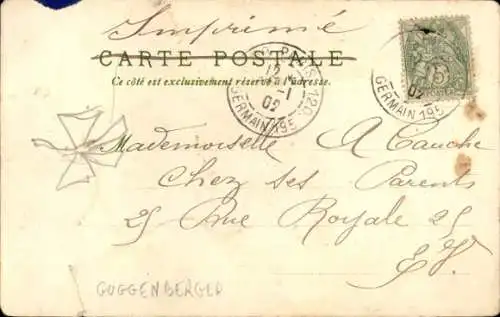 Imprimé
CARTE POSTALE
Ce côté est exclusivement réservé à l'adresse.
PARIS 120
12
-1
02
GERMAIN 195
5
02
GERMAIN 195
Mademoiselle A Cauche
Chez ses Parents
25 Rue Royale 25
E.V.
GUGGENBERGER